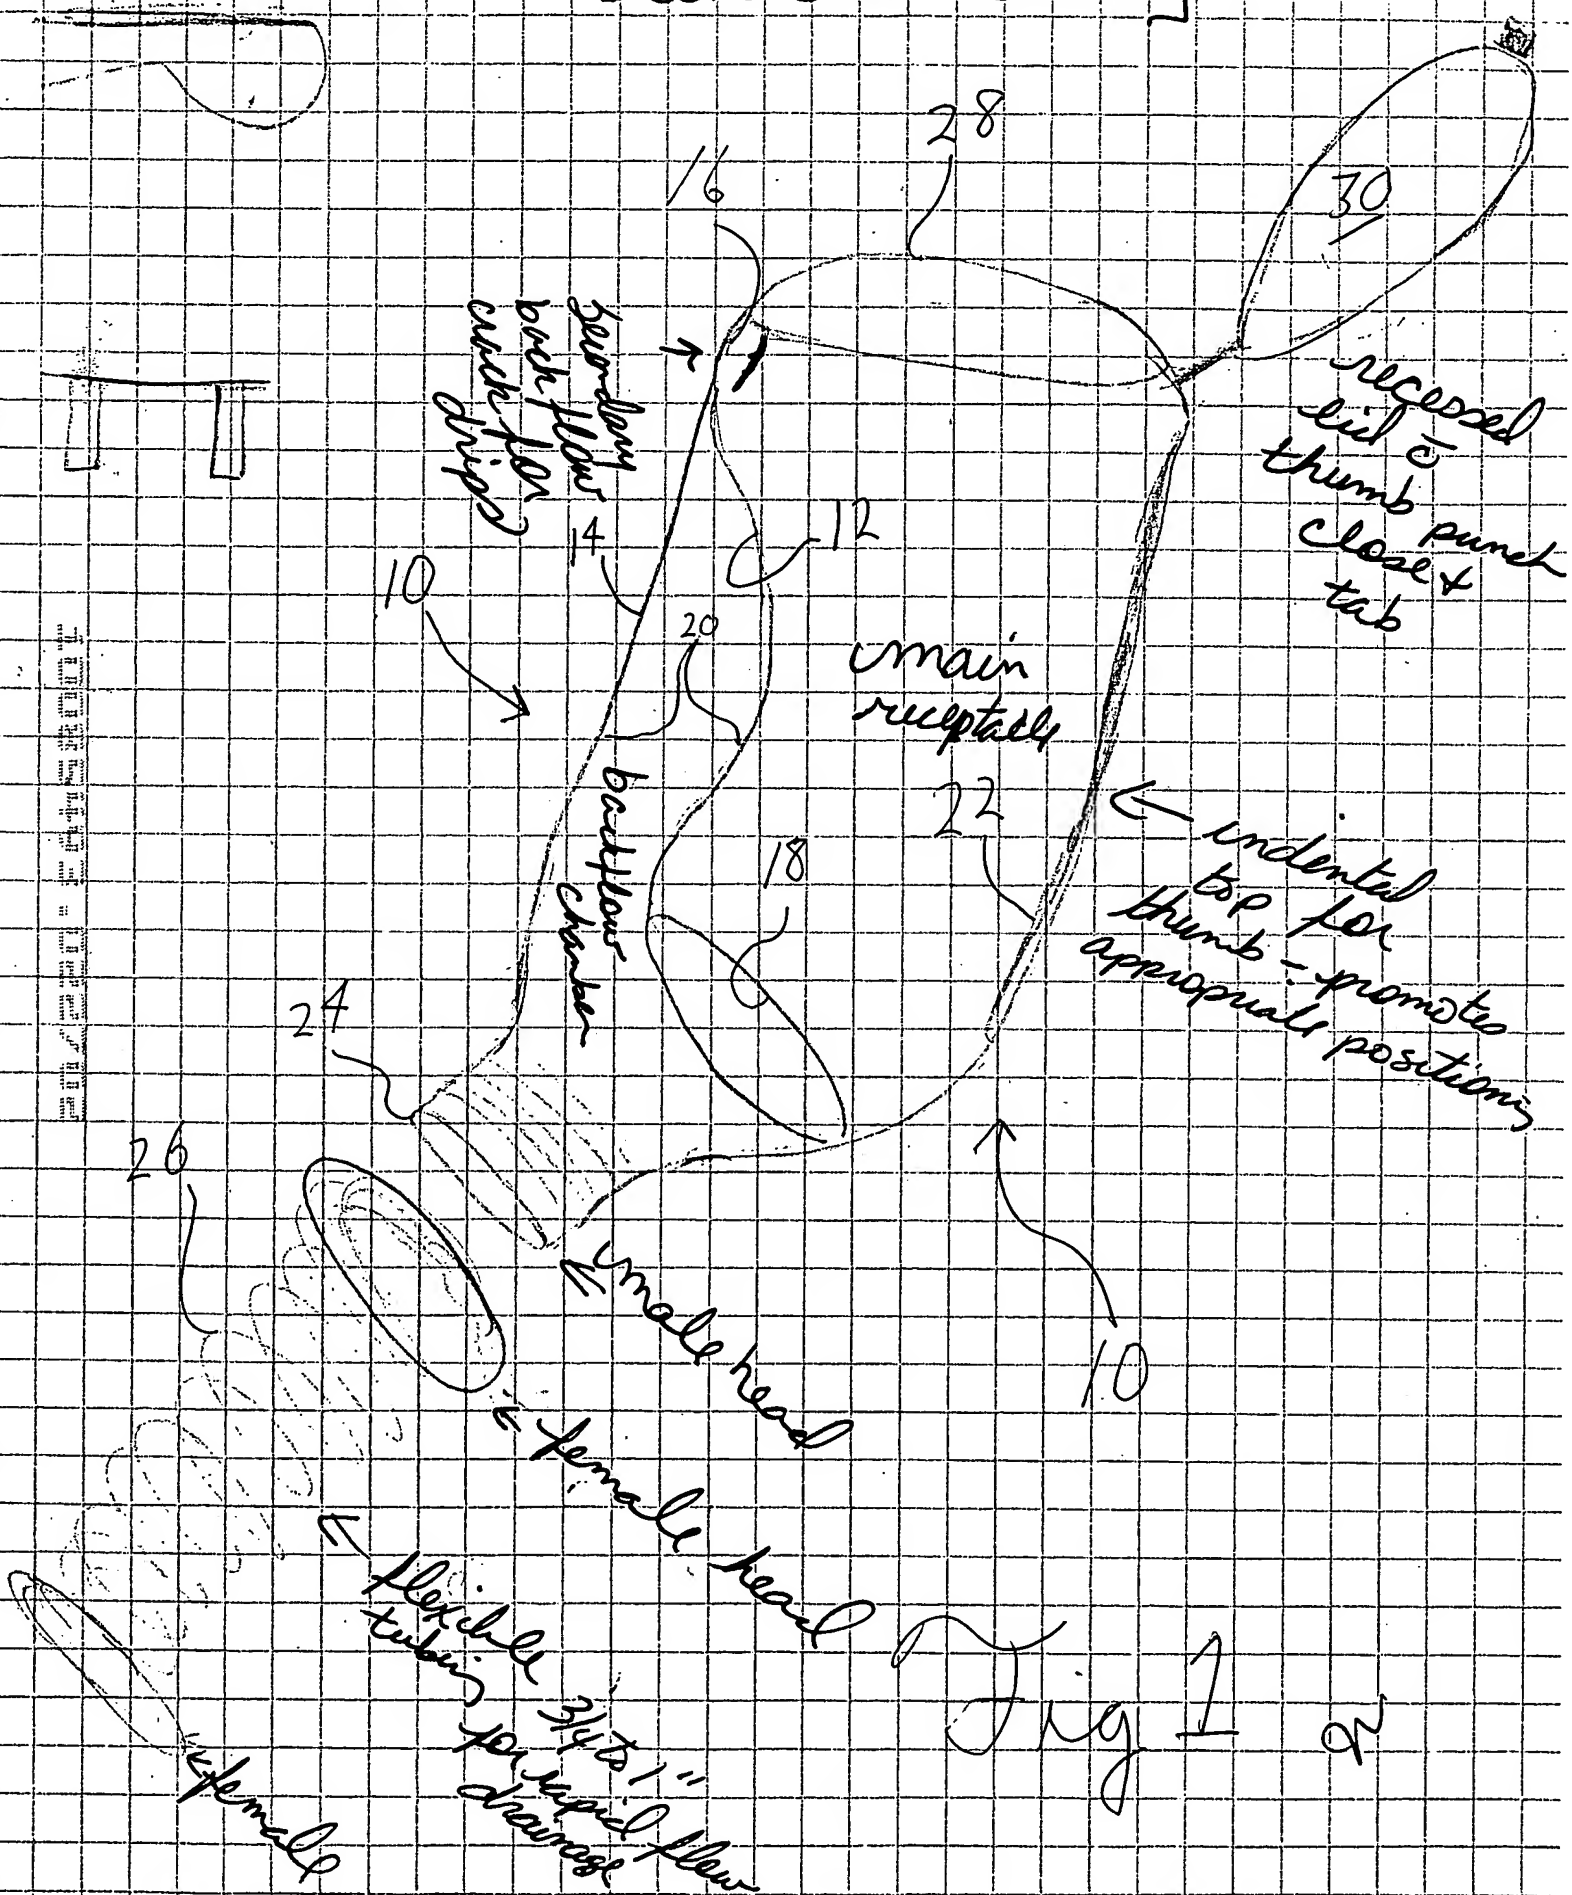 28
16
30
secondary
back flow
catch for
drips
recessed
lid c̄
thumb punch
close +
tab
14
12
10
20
main
receptacle
22
← indented
top for
thumb - promotes
appropriate positioning
backflow
chamber
18
24
26
male head
10
female head
flexible 3/4 to 1"
tubing for rapid flow
drainage
female
Fig 1